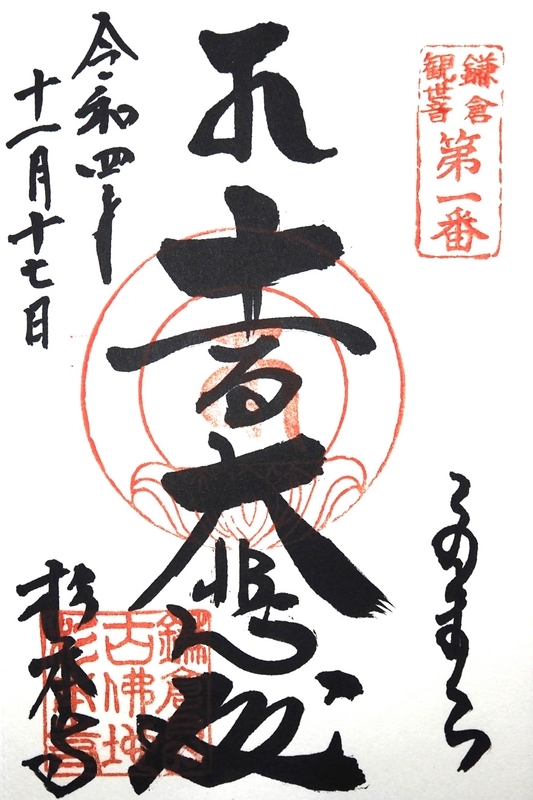 鎌倉
観世音
第一番
十一面大悲殿
令和四年
十一月十七日
杉本寺
鎌倉最
古佛地
杉本寺